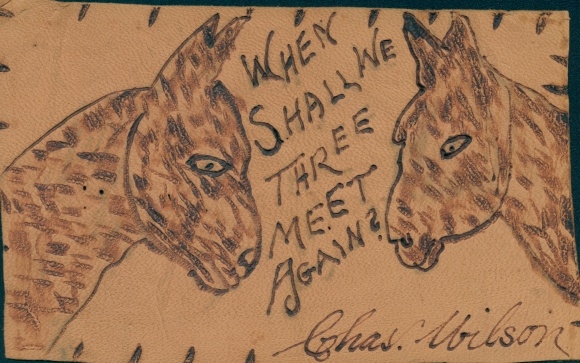 WHEN
SHALL WE
THREE
MEET
AGAIN?
Chas. Wilson